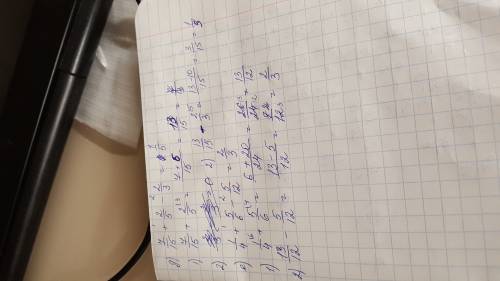 7/15 + 2/5 - 2/3 = 1/5
1) 7/15 + 2/5 = 7+6/15 = 13/15
2) 13/15 - 2/3 = 13-10/15 = 3/15 = 1/5
1/4 + 5/6 - 5/12 = 2/3
1) 1/4 + 5/6 = 6+20/24 = 26/24 = 13/12
2) 13/12 - 5/12 = 13-5/12 = 8/12 = 2/3